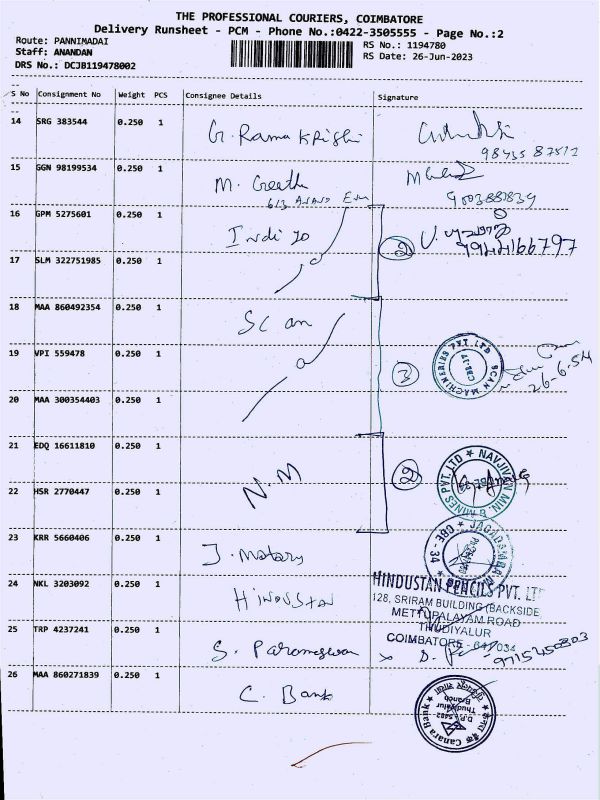 THE PROFESSIONAL COURIERS, COIMBATORE
Delivery Runsheet - PCM - Phone No.:0422-3505555 - Page No.:2
Route: PANNIMADAI
Staff: ANANDAN
DRS No.: DCJB119478002
RS No.: 1194780
RS Date: 26-Jun-2023
S No Consignment No Weight PCS Consignee Details Signature
14 SRG 383544 0.250 1 G. Rama Krishi
98435 87512
15 GGN 98199534 0.250 1 M. Geetha
613 Anand
9003881839
16 GPM 5275601 0.250 1 Indigo
2
7944166797
17 SLM 322751985 0.250 1
18 MAA 860492354 0.250 1 Scan
19 VPI 559478 0.250 1
3
SCAN MACHINERIES PVT. LTD
CBE-34
20 MAA 300354403 0.250 1
21 EDQ 16611810 0.250 1 N.M
2
NAVJIVAN MIN. & MINES PVT. LTD
22 HSR 2770447 0.250 1
23 KRR 5660406 0.250 1 J. Motors
CBE - 34
24 NKL 3203092 0.250 1 Hindustan
HINDUSTAN PENCILS PVT. LT
128, SRIRAM BUILDING (BACKSIDE
METTUPALAYAM ROAD
THUDIYALUR
COIMBATORE - 641034
25 TRP 4237241 0.250 1 S. Parameswan
26 MAA 860271839 0.250 1 C. Bank
Canara Bank
Thudiyalur
Branch